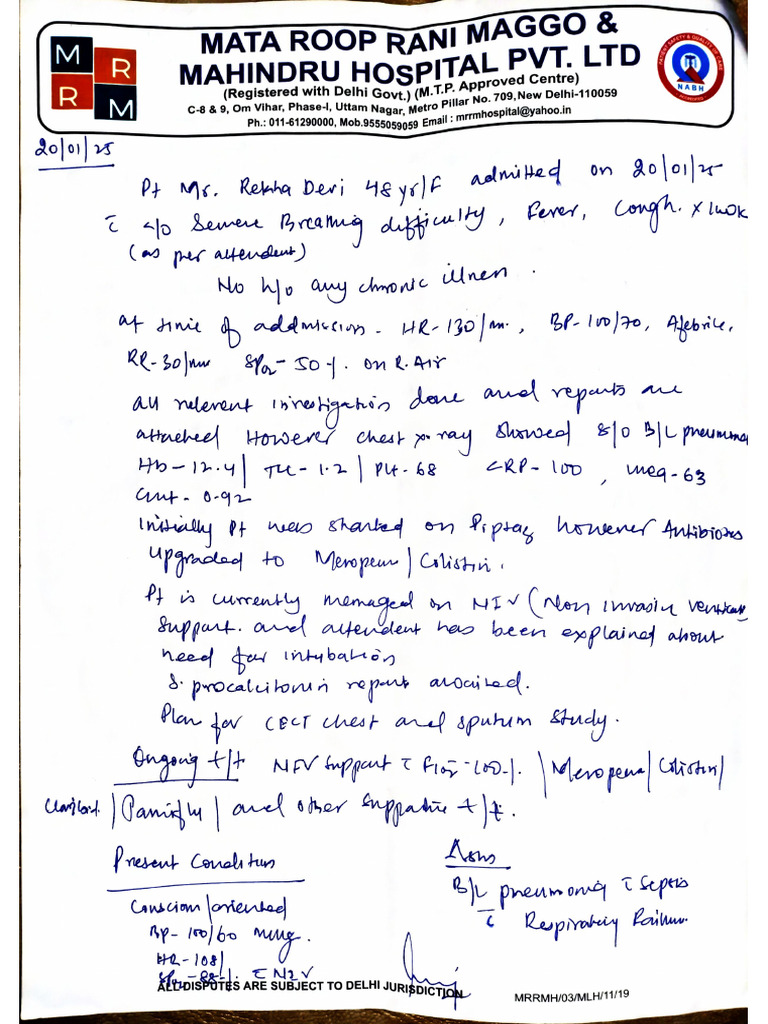 M R R M
MATA ROOP RANI MAGGO &
MAHINDRU HOSPITAL PVT. LTD
(Registered with Delhi Govt.) (M.T.P. Approved Centre)
C-8 & 9, Om Vihar, Phase-I, Uttam Nagar, Metro Pillar No. 709, New Delhi-110059
Ph.: 011-61290000, Mob.9555059059 Email : mrrmhospital@yahoo.in
PATIENT SAFETY & QUALITY OF CARE
NABH
20/01/25
Pt Mr. Rekha Devi 48 yr/F admitted on 20/01/25
c̄ c/o Severe Breathing difficulty, Fever, Cough.
(as per attendent)
No h/o any chronic illness.
at time of addmission - HR-130/min, BP-100/70, Afebrile,
RR-30/min SPO2-50%. on R. Air
all relevant investigation done and reports are
attached However chest x-ray showed S/O B/L pneumonia
Hb-12.4 | TLC-1.2 | Plt-68 CRP-100, urea-63
Creat-0.92
Initially Pt was started on Piptaz however Antibiotics
upgraded to Meropenem/Colistin.
Pt is currently managed on NIV (Non invasive
support. and attendent has been explained about
need for intubation
S. procalcitonin report awaited.
Plan for CECT chest and sputum study.
Ongoing t/t NIV support c̄ FiO2-100%. | Meropenem/Colistin/
and other supportive t/t.
Present Condition
Conscious/oriented
BP-100/60 mmhg.
HR-108/
SPO2-88% c̄ NIV
B/L pneumonia c̄ Sepsis
c̄ Respiratory Failure
ALL DISPUTES ARE SUBJECT TO DELHI JURISDICTION
MRRMH/03/MLH/11/19